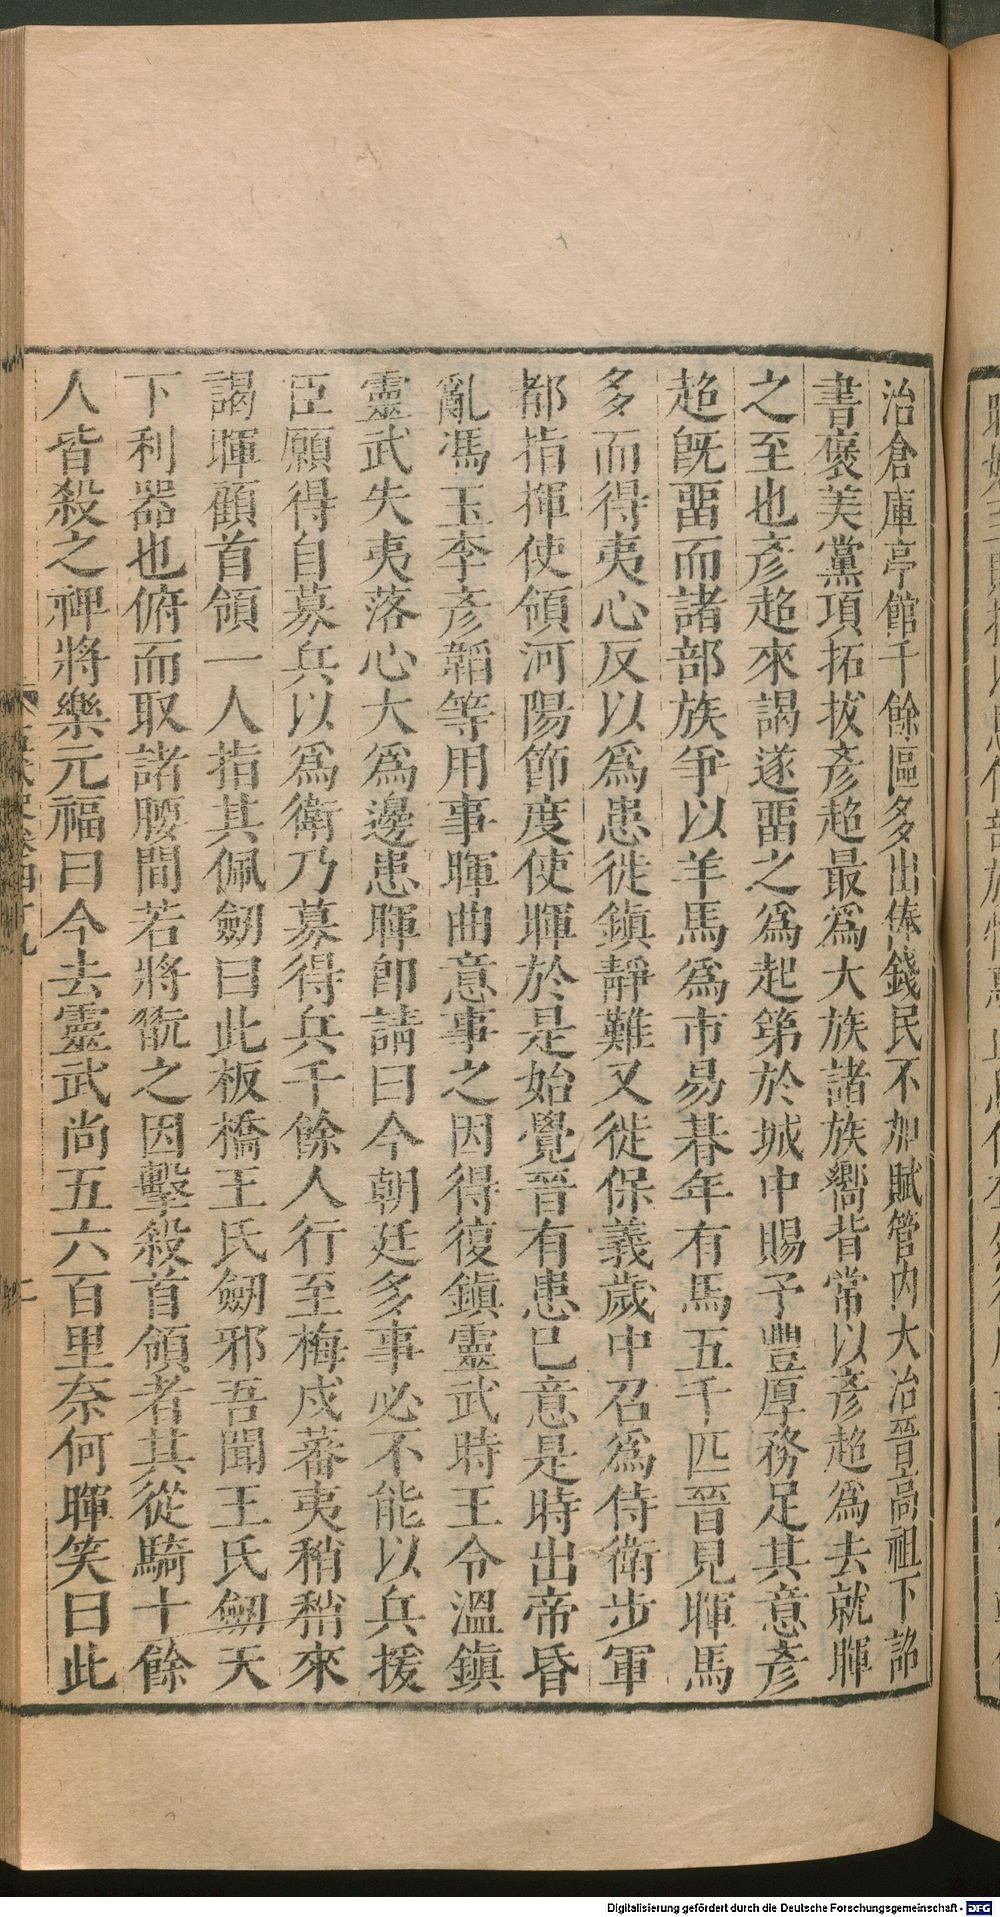 治倉庫亭館千餘區多出俸錢民不加賦管内大治晉高祖下詔
書褒美黨項拓拔彥超最爲大族諸族嚮背常以彥超爲去就暉
之至也彥超來謁遂畱之爲起第於城中賜予豐厚務足其意彥
超旣畱而諸部族爭以羊馬爲市易朞年有馬五千匹晉見暉馬
多而得夷心反以爲患徙鎮靜難又徙保義歲中召爲侍衛步軍
都指揮使領河陽節度使暉於是始覺晉有患已意是時出帝昏
亂馮玉李彥韜等用事暉曲意事之因得復鎮靈武時王令溫鎮
靈武失夷落心大爲邊患暉卽請曰今朝廷多事必不能以兵援
臣願得自募兵以爲衛乃募得兵千餘人行至梅戍蕃夷稍稍來
謁暉顧首領一人指其佩劒曰此板橋王氏劒邪吾聞王氏劒天
下利器也俯而取諸腰間若將翫之因擊殺首領者其從騎十餘
人皆殺之裨將樂元福曰今去靈武尚五六百里奈何暉笑曰此
五代史卷四十九
Digitalisierung gefördert durch die Deutsche Forschungsgemeinschaft - DFG